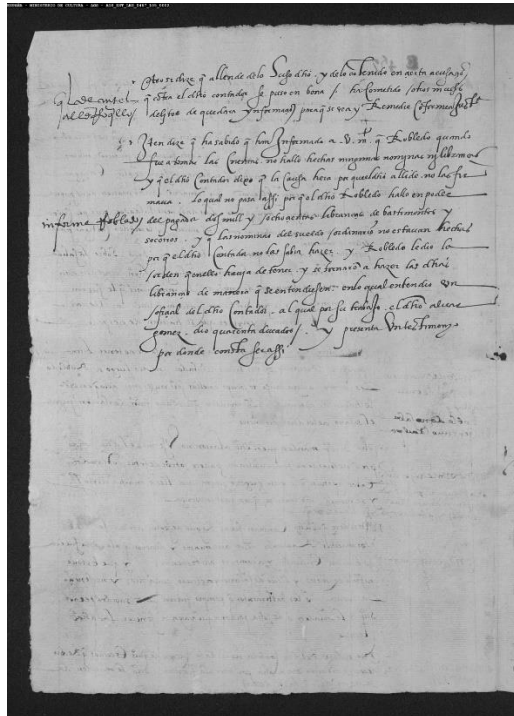 Otrosi dize q̃ allende delo Suso dho y delo contenido en aquesta acusaçoⁿ
q̃sta el dho contador se puso en bona / ha cometido otros muchos
delitos de quedara Informaçoⁿ para q̃ se vea y Remedie Conforme a Justª
Iten dize q̃ ha sabido q̃ han Informado a V. mᵗ q̃ Robledo quando
fue a tomar las Cuentas no hallo hechas ningunas nominas ny libranças
y q̃ el dho Contador dixo q̃ la causa hera por quel dho allcde no las fir
maua lo qual no pasa assi por q̃ el dho Robledo hallo en poder
informe Robledo
del pagador dos mill y ochocientas libranças de bastimentos y
socorros y q̃ las nominas del sueldo hordinario no estauan hechas
por q̃ el dho Contador no las sabia hazer y Robledo le dio la
horden q̃ en ello hauia de tener y se tornaron a hazer las dhas
libranças de manera q̃ se entendiesen en lo qual entendio un
ofiçial del dho Contador al qual por su trabajo el dho alvar
gomez dio quarenta ducados / y presenta Un testimonyo
por donde consta ser assi